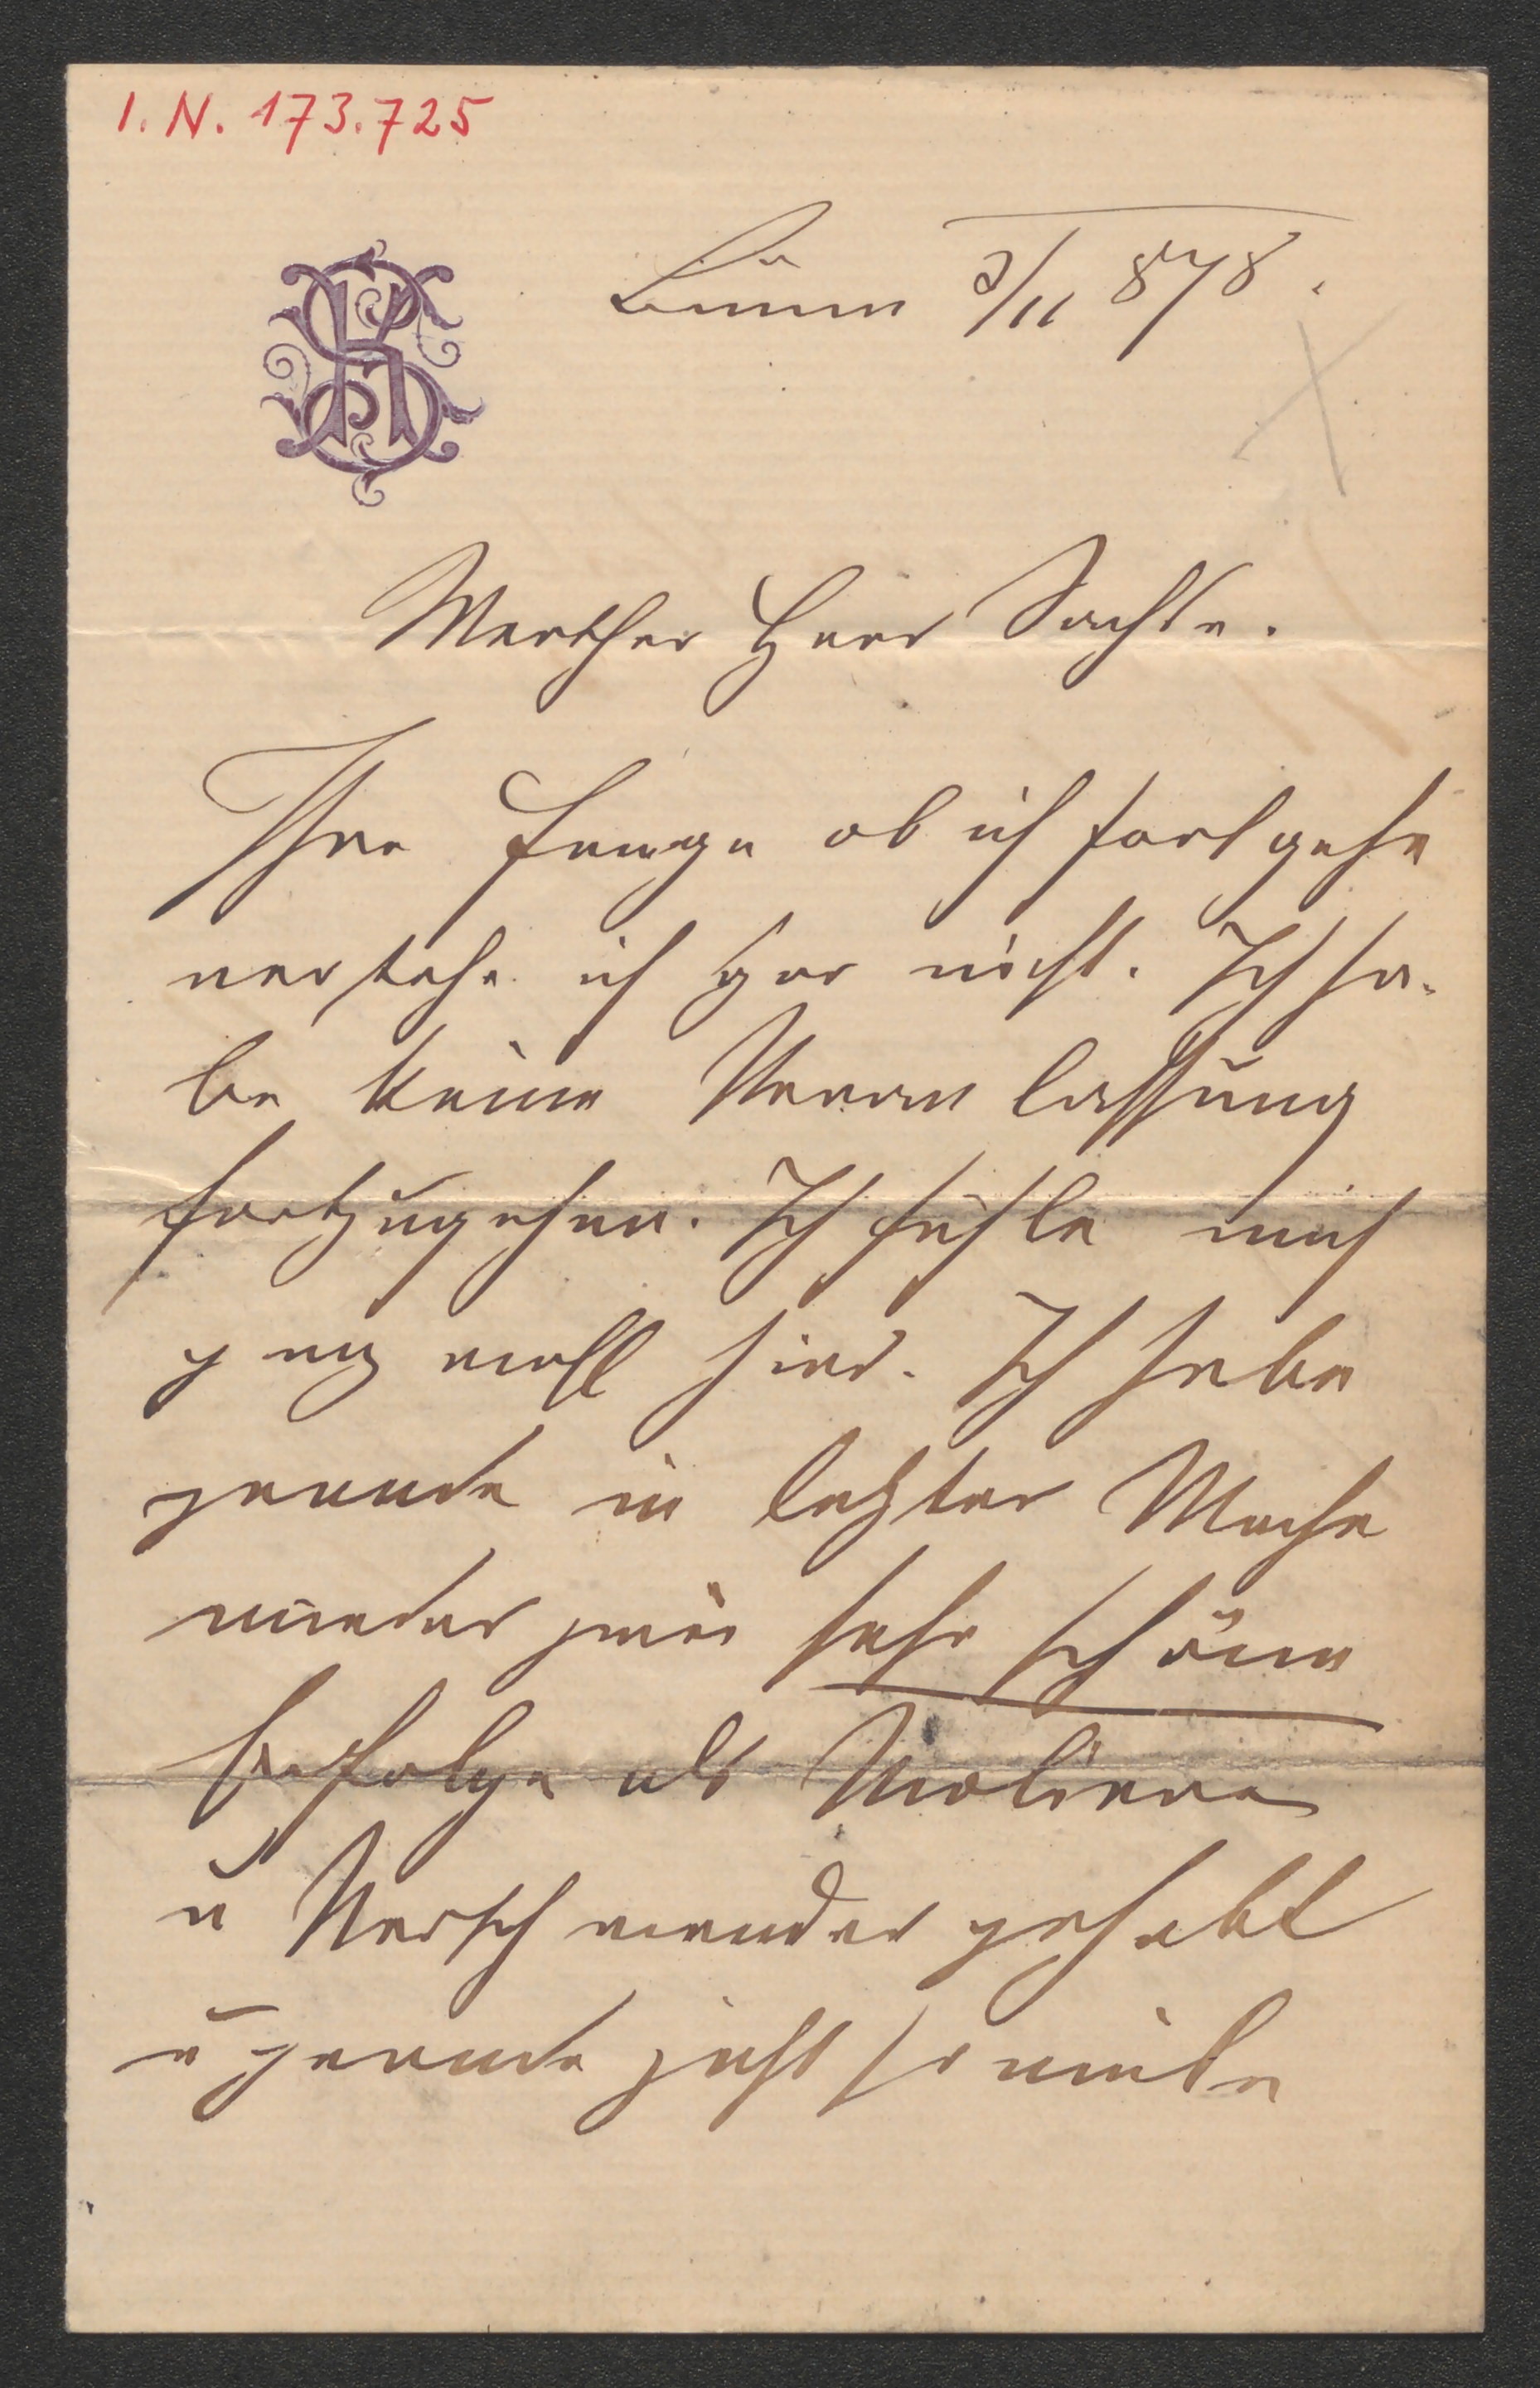 I. N. 173.725
Brünn 2/11 878.
Werther Herr Sachse.
Ihre Frage ob ich fortgehe
verstehe ich gar nicht. Ich ha-
be keine Veranlassung
fortzugehen. Ich fühle mich
ganz wohl hier. Ich habe
gerade in letzter Woche
wieder zwei sehr schöne
Erfolge als Moliere
u Verschwender gehabt
u gerade jetzt so viele